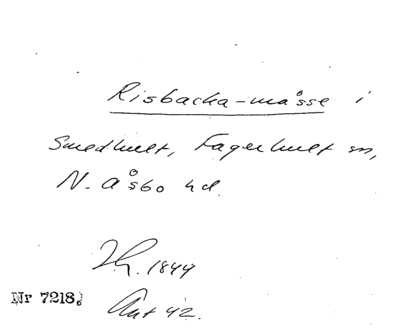 Risbacka-måsse i
Smedhult, Fagerhult sn,
N. Åsbo hd.
Hg. 1844
Nr 7218.
Ant 42.